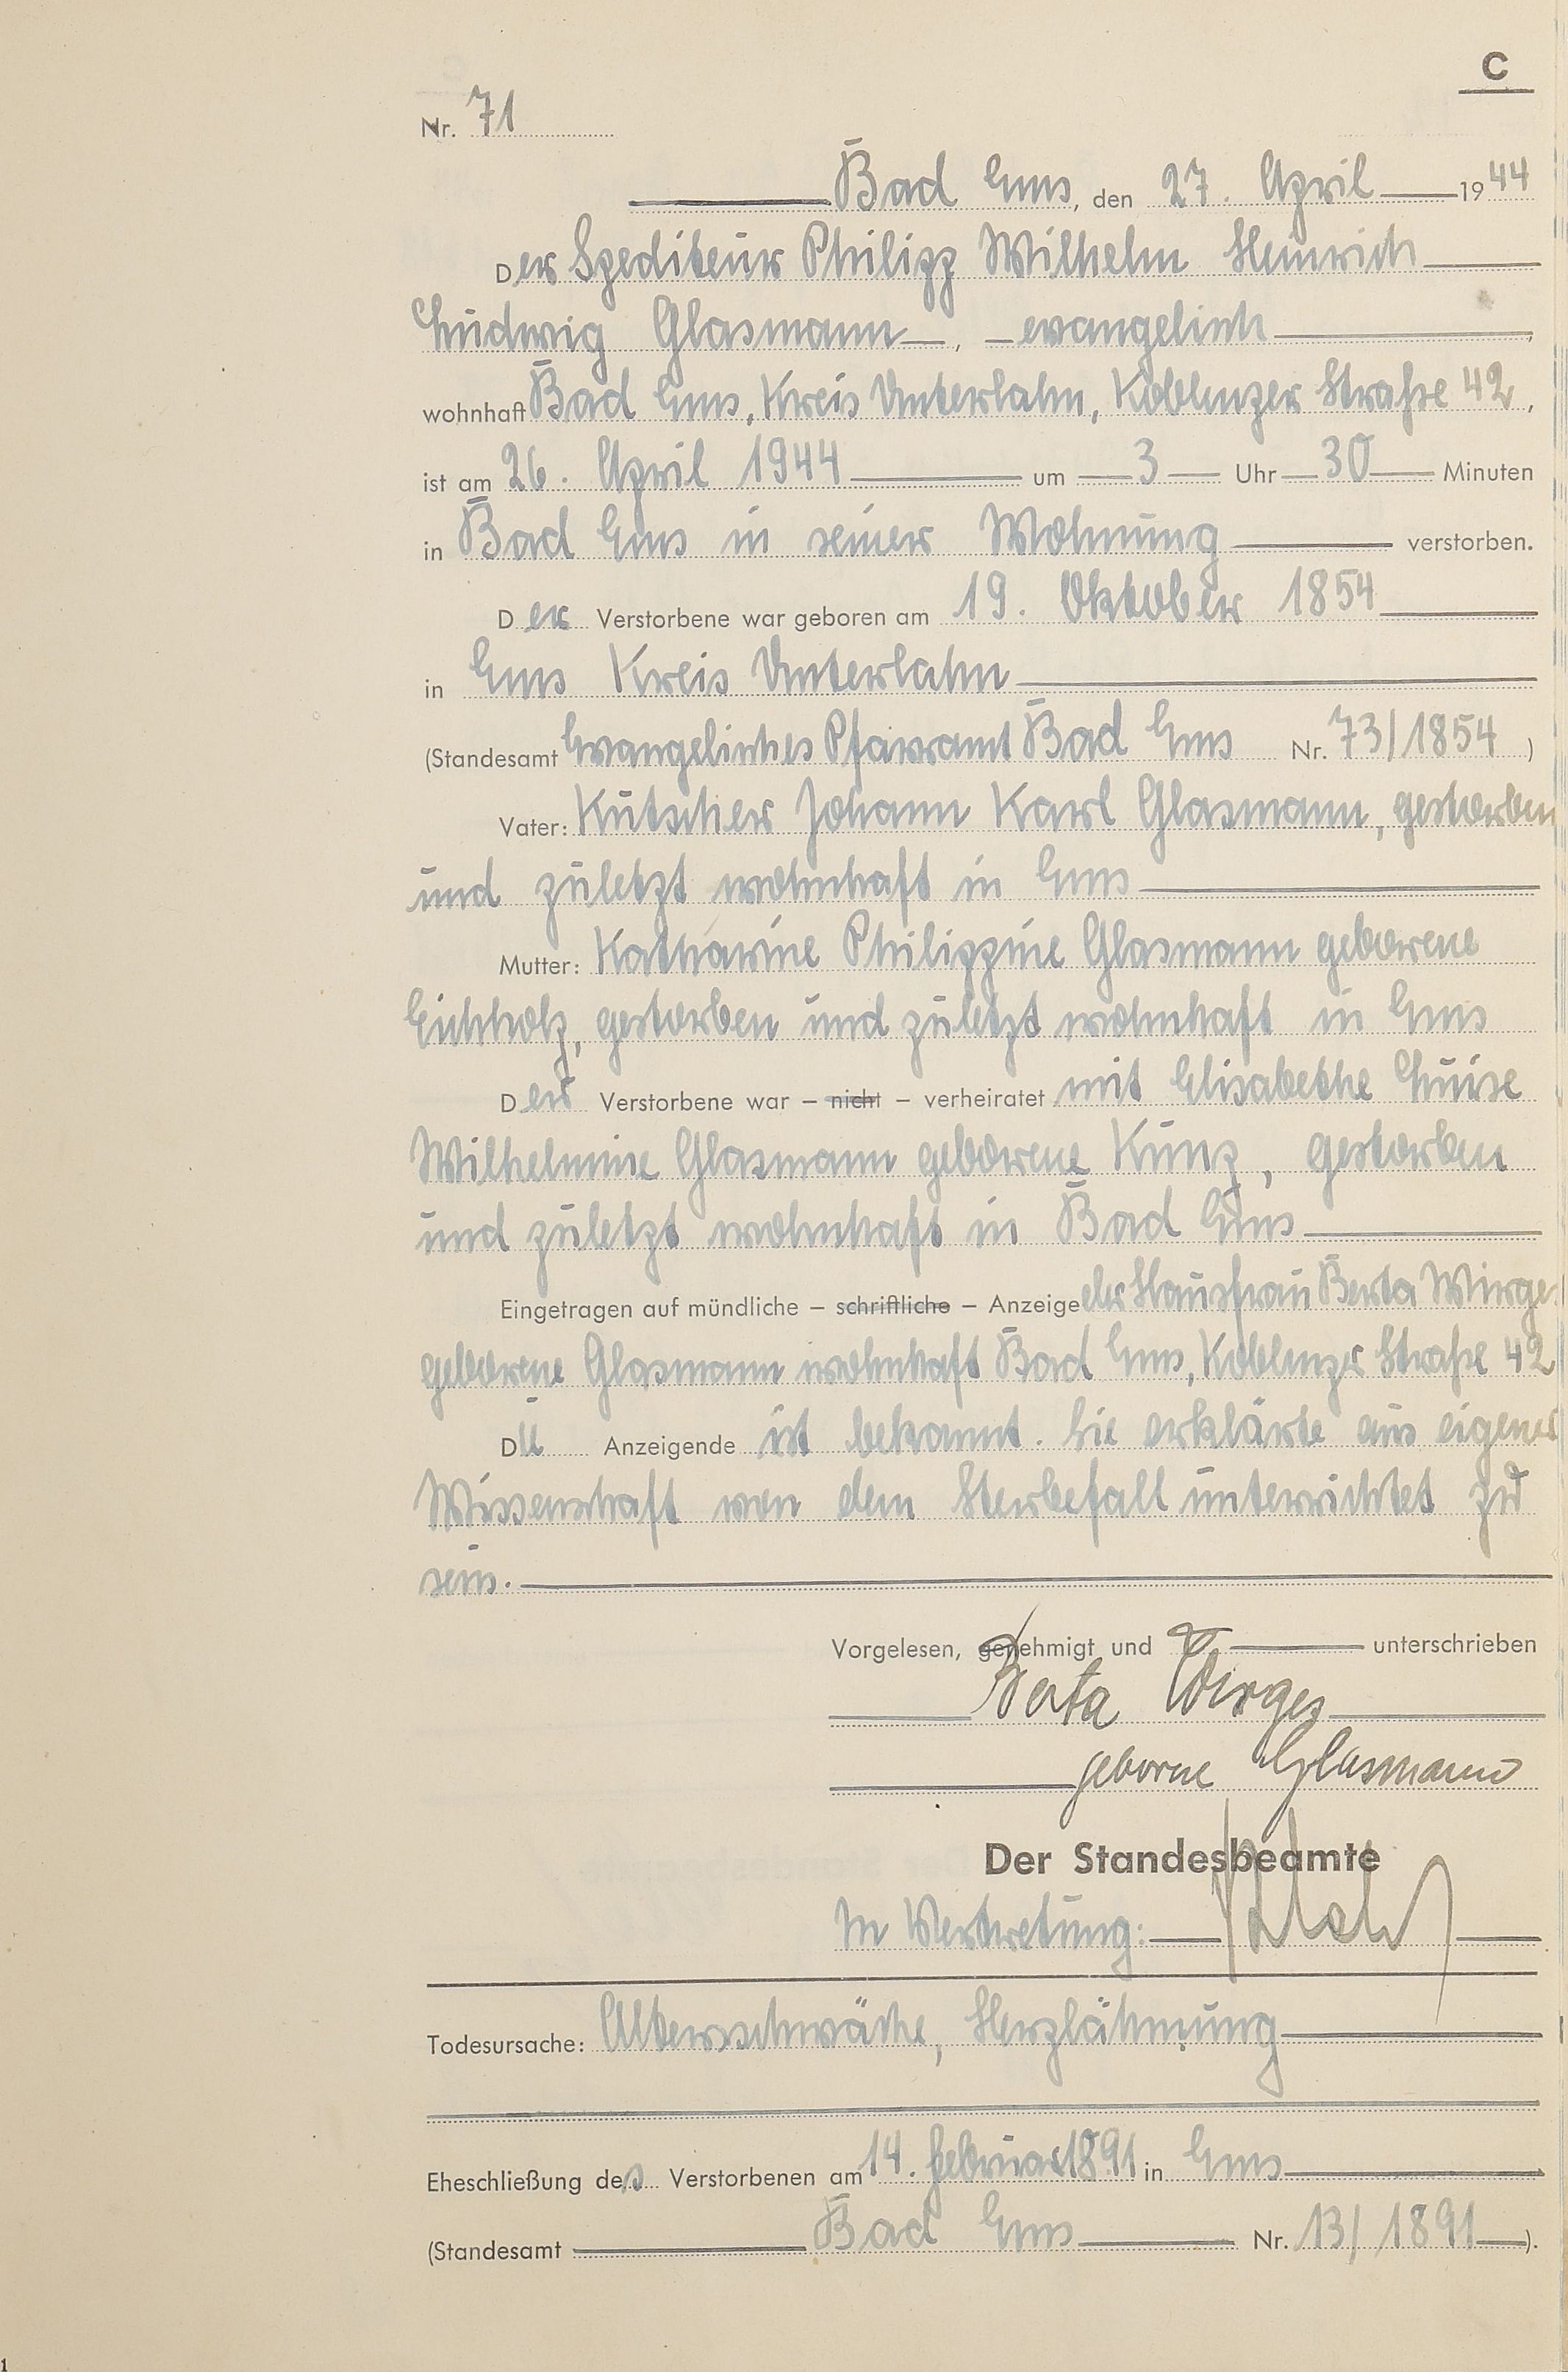 C
Nr. 71
Bad Ems, den 27. April 1944
Der Spediteur Philipp Wilhelm Heinrich
Ludwig Glasmann, evangelisch
wohnhaft Bad Ems, Kreis Unterlahn, Koblenzer Straße 42,
ist am 26. April 1944 um 3 Uhr 30 Minuten
in Bad Ems in seiner Wohnung verstorben.
Der Verstorbene war geboren am 19. Oktober 1854
in Ems Kreis Unterlahn
(Standesamt Evangelisches Pfarramt Bad Ems Nr. 73/1854 )
Vater: Kutscher Johann Karl Glasmann, gestorben
und zuletzt wohnhaft in Ems
Mutter: Katharine Philippine Glasmann geborene
Eichholz, gestorben und zuletzt wohnhaft in Ems
Der Verstorbene war – nicht – verheiratet mit Elisabethe Luise
Wilhelmine Glasmann geborene Kunz, gestorben
und zuletzt wohnhaft in Bad Ems
Eingetragen auf mündliche – schriftliche – Anzeige der Hausfrau Berta Wirges
geborene Glasmann wohnhaft Bad Ems, Koblenzer Straße 42
Die Anzeigende ist bekannt. Sie erklärte aus eigener
Wissenschaft von dem Sterbefall unterrichtet zu
sein.
Vorgelesen, genehmigt und unterschrieben
Berta Wirges
geborne Glasmann
Der Standesbeamte
In Vertretung:
Todesursache: Altersschwäche, Herzlähmung
Eheschließung des Verstorbenen am 14. Februar 1891 in Ems
(Standesamt Bad Ems Nr. 13/1891 ).
1